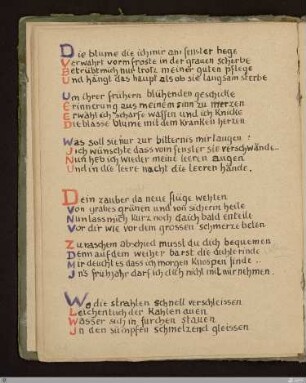 Die blume die ich mir am fenster hege
Verwahrt vorm froste in der grauen scherbe
Betrübt mich nur troz meiner guten pflege
Und hängt das haupt als ob sie langsam sterbe
Um ihrer frühern blühenden geschicke
Erinnerung aus meinem sinn zu merzen
Erwähl ich scharfe waffen und ich knicke
Die blasse blume mit dem kranken herzen
Was soll sie nur zur bitternis mir taugen?
Ich wünschte dass vom fenster sie verschwände..
Nun heb ich wieder meine leeren augen
Und in die leere nacht die leeren hände.
Dein zauber da neue flüge wehten
Von grabes grünen und von sichrem heile
Nun lass mich kurz noch da ich bald enteile
Vor dir wie vor dem grossen schmerze beten
Zu raschem abschied musst du dich bequemen
Denn auf dem weiher barst die dichte rinde
Mir deucht es dass ich morgen knospen finde.
Ins frühjahr darf ich dich nicht mit mir nehmen.
Wo die strahlen schnell verschleissen
Leichentuch der kahlen auen
Wasser sich in furchen stauen
In den sümpfen schmelzend gleissen